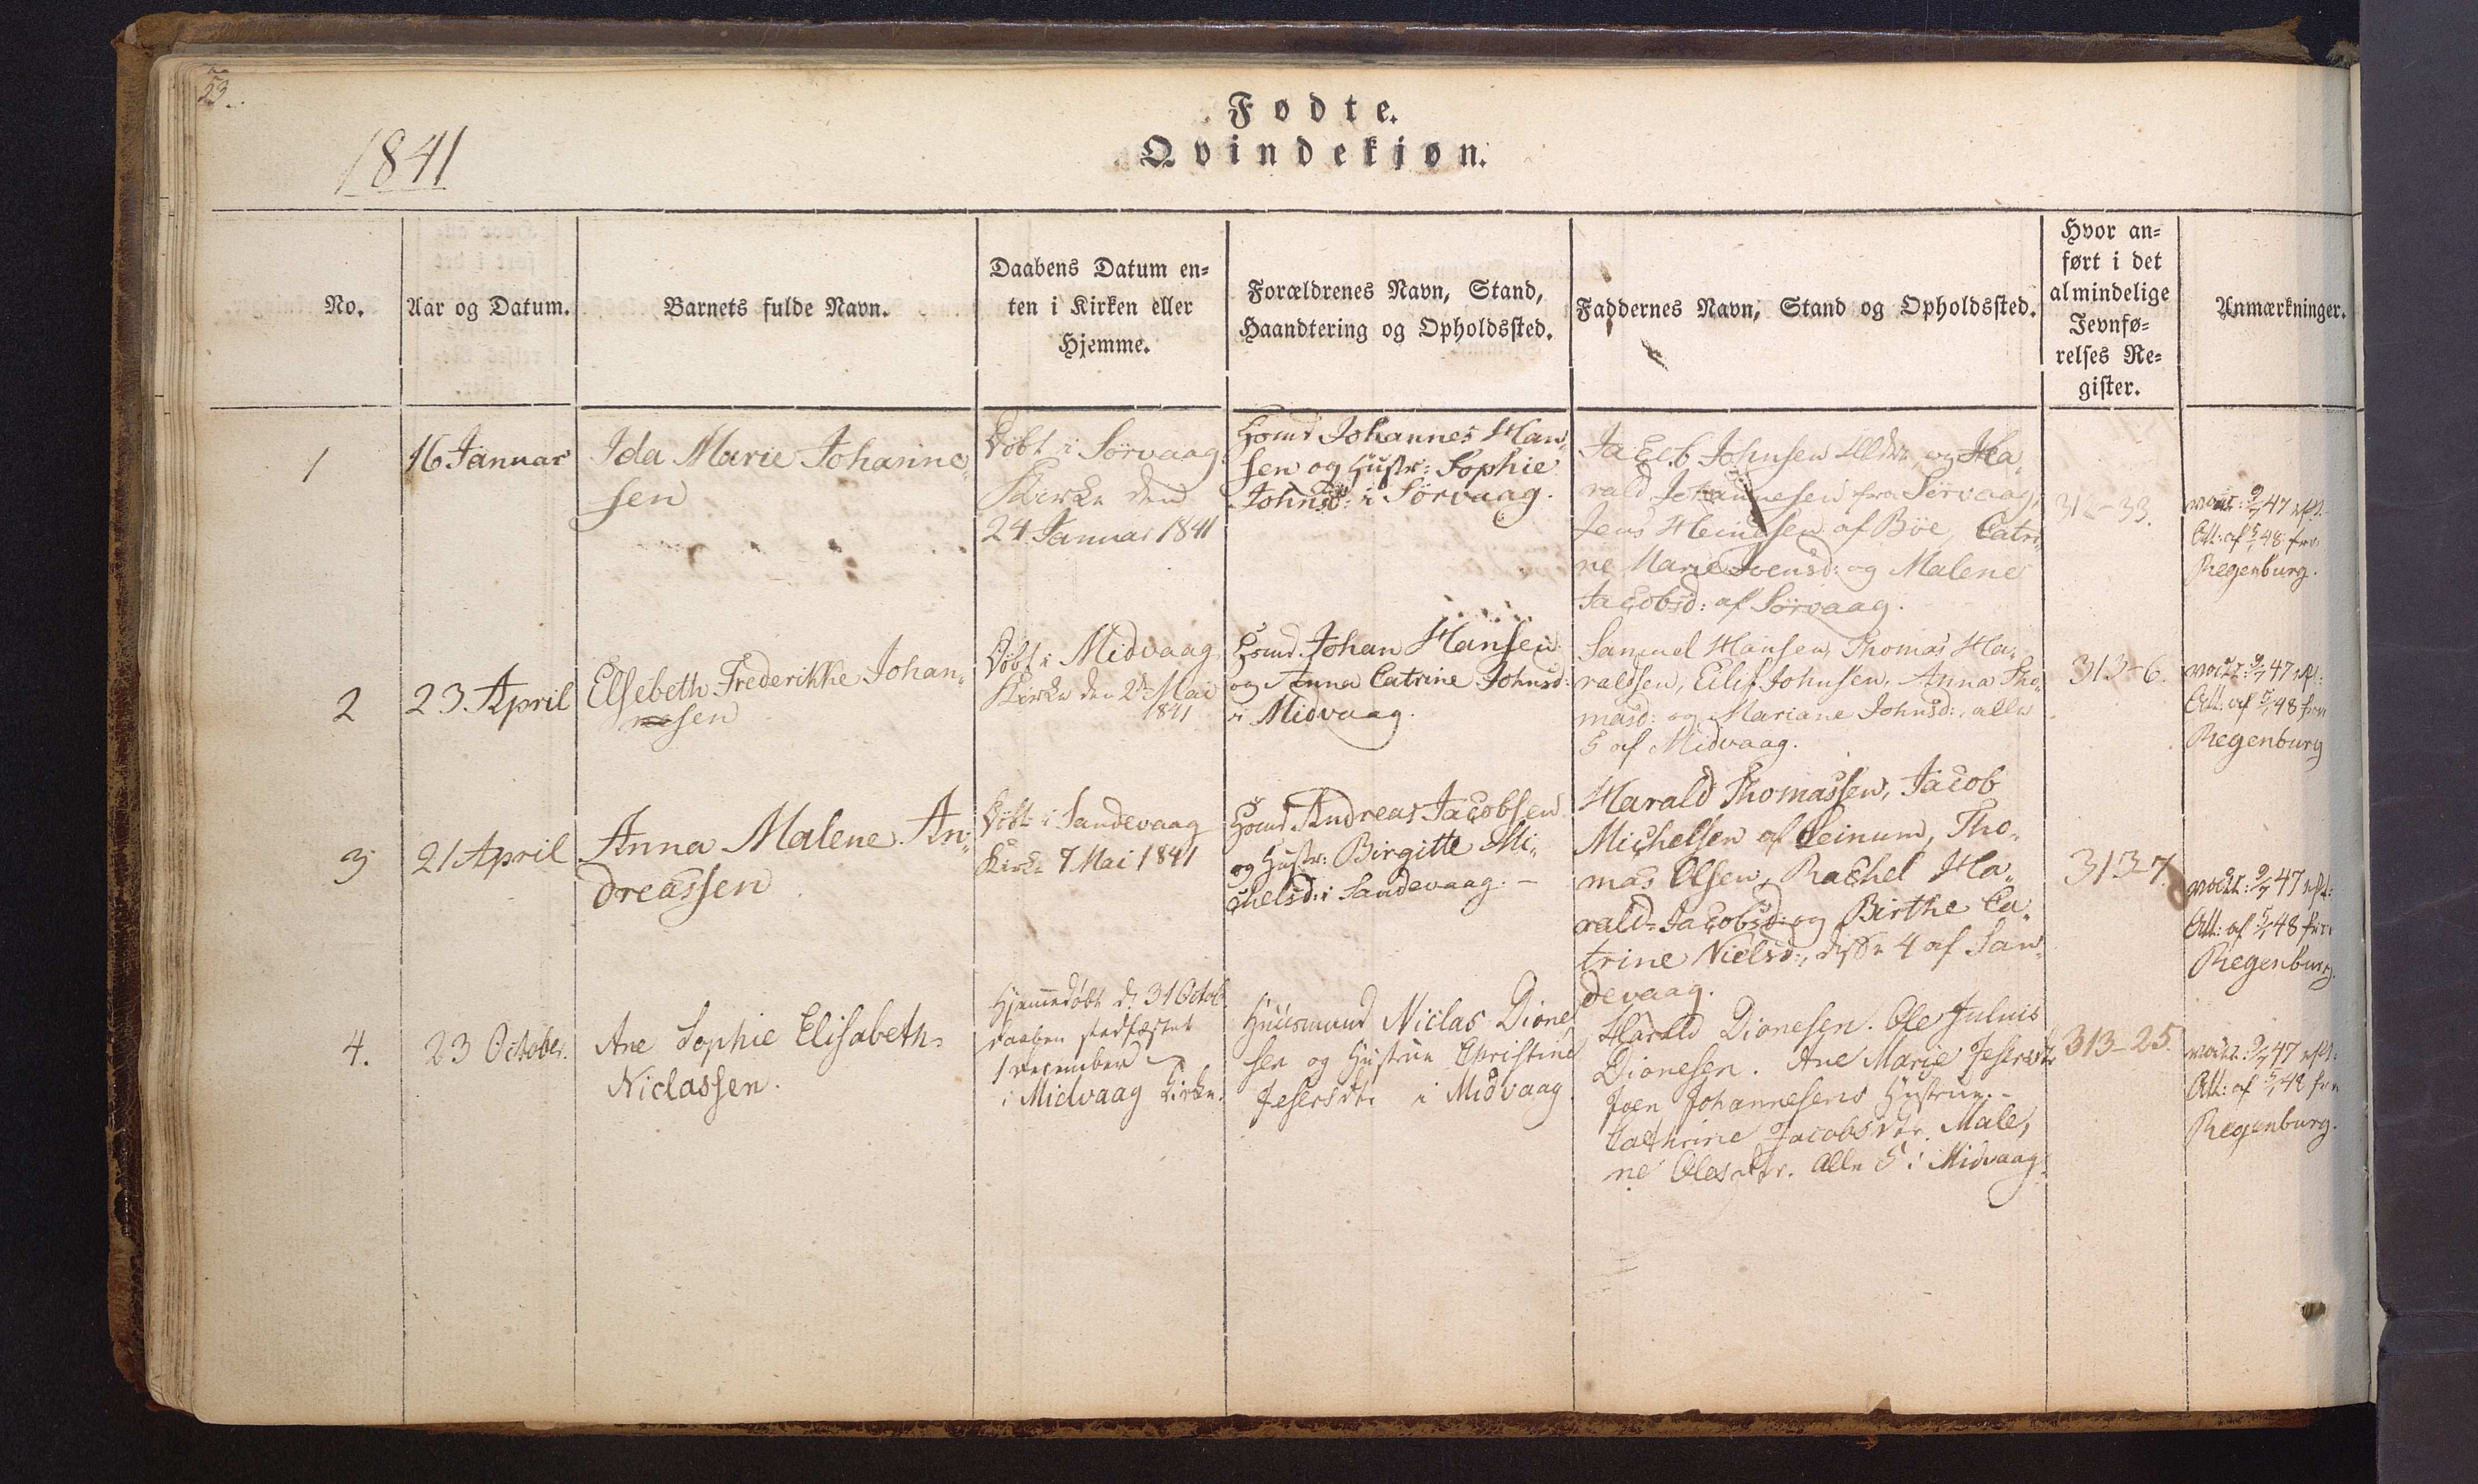 53.
1841
Fødte.
Qvindekjøn.
No.
Aar og Datum.
Barnets fulde Navn.
Daabens Datum en-
ten i Kirken eller
Hjemme.
Forældrenes Navn, Stand,
Haandtering og Opholdssted.
Faddernes Navn, Stand og Opholdssted.
Hvor an-
ført i det
almindelige
Jevnfø-
relses Re-
gister.
Anmærkninger.
1
16 Januar
Ida Marie Johanne-
sen
Döbt i Sörvaag
Kirke den
24. Januar 1841
Huusmd Johannes Han-
sen og Hustr: Sophie
Johnsd: i Sörvaag.
Jacob Johnsen og Ha-
rald Johannesen fra Sörvaag,
Jens Heinesen af Böe, Catri-
ne Marie Joensd: og Malene
Jacobsd: af Sörvaag.
312-33.
vacc: 9/7 47 eft.
Att: af 5/1 48 fra
Regenburg.
2
23. April
Elsebeth Frederikke Johan-
nesen
Döbt i Midvaag
Kirke den 2d Mai
1841
Huusmd. Johan Hansen
og Anna Catrine Johnsd:
i Midvaag.
Samuel Hansen, Thomas Ha-
raldsen, Eilif Johnsen, Anna Tho-
masd: og Mariane Johnsd:, alle
5 af Midvaag.
313-6.
vacc: 9/7 47 eft:
Att: af 5/1 48 fra
Regenburg
3
21 April
Anna Malene An-
dreassen
Döbt i Sandevaag
Kirke 7 Mai 1841
Huusmd Andreas Jacobsen
og Hustr: Birgitte Mi-
chelsd: i Sandevaag. -
Harald Thomassen, Jacob
Michelsen af Leinum, Tho-
mas Olsen, Rachel Ha-
rald- Jacobsd: og Birthe Ca-
trine Nielsd:, disse 4 af San-
devaag.
313-7.
vacc: 9/7 47 eft:
Att: af 5/1 48 fra
Regenburg.
4.
23 October.
Ane Sophie Elisabeth-
Niclassen.
Hjemmedöbt d: 31 Octob
Daaben stadfæstet
1 December
i Midvaag Kirke.
Huusmand Niclas Dione-
sen og Hustrue Christine
Jesersdtr i Midvaag
Harald Dionesen. Ole Julius
Dionesen. Ane Marie Jesersdtr
Joen Johannesens Hustrue. -
Cathrine Jacobsdtr. Male-
ne Olesdtr. Alle 5 i Midvaag.
313-25.
vacc: 9/7 47 eft:
Att: af 5/1 48 fra
Regenburg.